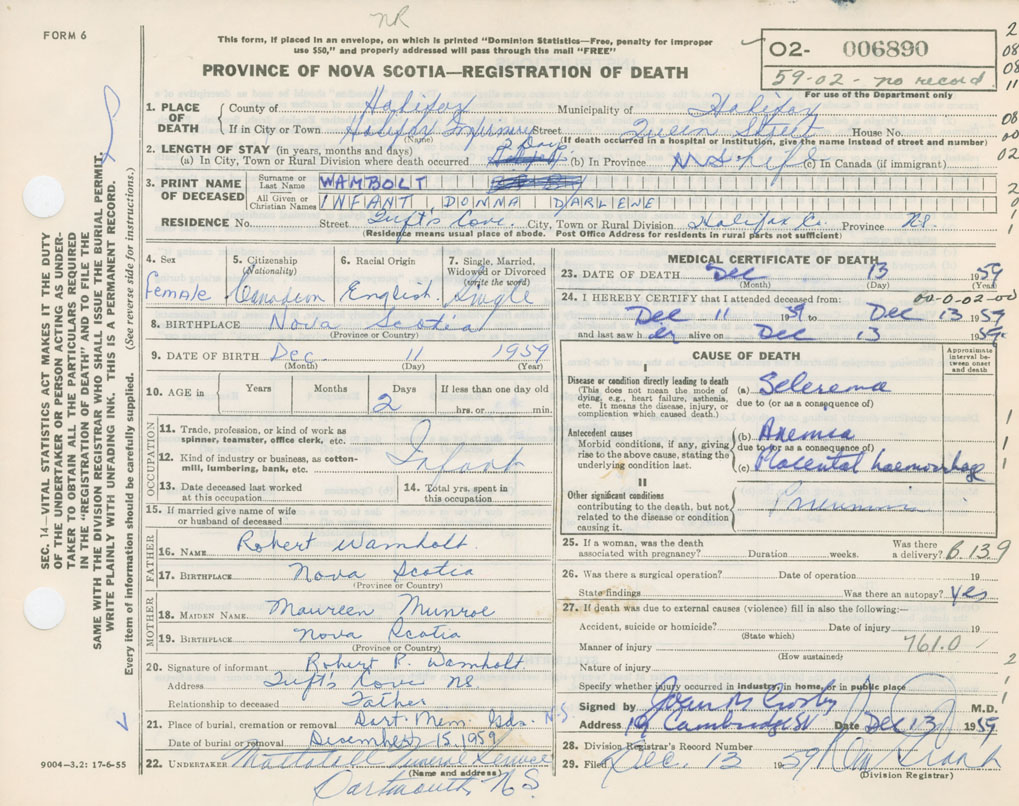 NR
FORM 6
This form, if placed in an envelope, on which is printed "Dominion Statistics—Free, penalty for improper
use $50," and properly addressed will pass through the mail "FREE"
PROVINCE OF NOVA SCOTIA—REGISTRATION OF DEATH
O2- 006890
59-02- no record
For use of the Department only
1. PLACE OF DEATH County of Halifax Municipality of Halifax
If in City or Town Halifax Infirmary Street Queen Street House No.
(Name) (If death occurred in a hospital or institution, give the name instead of street and number)
2. LENGTH OF STAY (in years, months and days) 2 Days
(a) In City, Town or Rural Division where death occurred (b) In Province (c) In Canada (if immigrant)
3. PRINT NAME OF DECEASED Surname or Last Name WAMBOLT
All Given or Christian Names INFANT, DONNA DARLENE
RESIDENCE No. Street Tuft's Cove. City, Town or Rural Division Halifax Co. Province N.S.
(Residence means usual place of abode. Post Office Address for residents in rural parts not sufficient)
4. Sex Female
5. Citizenship (Nationality) Canadian
6. Racial Origin English
7. Single, Married, Widowed or Divorced (write the word) Single
8. BIRTHPLACE Nova Scotia
(Province or Country)
9. DATE OF BIRTH Dec. 11 1959
(Month) (Day) (Year)
10. AGE in Years Months Days 2 If less than one day old hrs. or min.
OCCUPATION
11. Trade, profession, or kind of work as spinner, teamster, office clerk, etc.
12. Kind of industry or business, as cotton-mill, lumbering, bank, etc.
Infant
13. Date deceased last worked at this occupation
14. Total yrs. spent in this occupation
15. If married give name of wife or husband of deceased
FATHER
16. NAME Robert Wamholt
17. BIRTHPLACE Nova Scotia
(Province or Country)
MOTHER
18. MAIDEN NAME Maureen Munroe
19. BIRTHPLACE Nova Scotia
(Province or Country)
20. Signature of informant Robert P. Wamholt
Address Tuft's Cove NS
Relationship to deceased Father
21. Place of burial, cremation or removal Dart. Mem. Gdns. N.S.
Date of burial or removal December 15, 1959
22. UNDERTAKER Mattatall Funeral Service
(Name and address)
Dartmouth, N.S.
MEDICAL CERTIFICATE OF DEATH
23. DATE OF DEATH Dec 13 1959
(Month) (Day) (Year)
24. I HEREBY CERTIFY that I attended deceased from: 00-0-02-00
Dec 11 1959 to Dec 13 1959
and last saw her alive on Dec 13 1959.
CAUSE OF DEATH
Approximate interval between onset and death
I
Disease or condition directly leading to death
(This does not mean the mode of dying, e.g., heart failure, asthenia, etc. It means the disease, injury, or complication which caused death.)
(a) Sclerema
due to (or as a consequence of)
Antecedent causes
Morbid conditions, if any, giving rise to the above cause, stating the underlying condition last.
(b) Anemia
due to (or as a consequence of)
(c) Placental haemorrhage
II
Other significant conditions
contributing to the death, but not related to the disease or condition causing it.
25. If a woman, was the death associated with pregnancy? Duration weeks. Was there a delivery? B.139
26. Was there a surgical operation? Date of operation 19
State findings Was there an autopsy? yes
27. If death was due to external causes (violence) fill in also the following:—
Accident, suicide or homicide? Date of injury 19
(State which)
Manner of injury 761.0
(How sustained)
Nature of injury
Specify whether injury occurred in industry, in home, or in public place
Signed by John M Crosby M.D.
Address 19 Cambridge St Date Dec 13 1959
28. Division Registrar's Record Number
29. Filed Dec. 13 1959
(Division Registrar)
SEC. 14—VITAL STATISTICS ACT MAKES IT THE DUTY
OF THE UNDERTAKER OR PERSON ACTING AS UNDER-
TAKER TO OBTAIN ALL THE PARTICULARS REQUIRED
IN THE "REGISTRATION OF DEATH" AND TO FILE THE
SAME WITH THE DIVISION REGISTRAR WHO SHALL ISSUE THE BURIAL PERMIT.
WRITE PLAINLY WITH UNFADING INK. THIS IS A PERMANENT RECORD.
Every item of information should be carefully supplied. (See reverse side for instructions.)
9004-3.2: 17-6-55